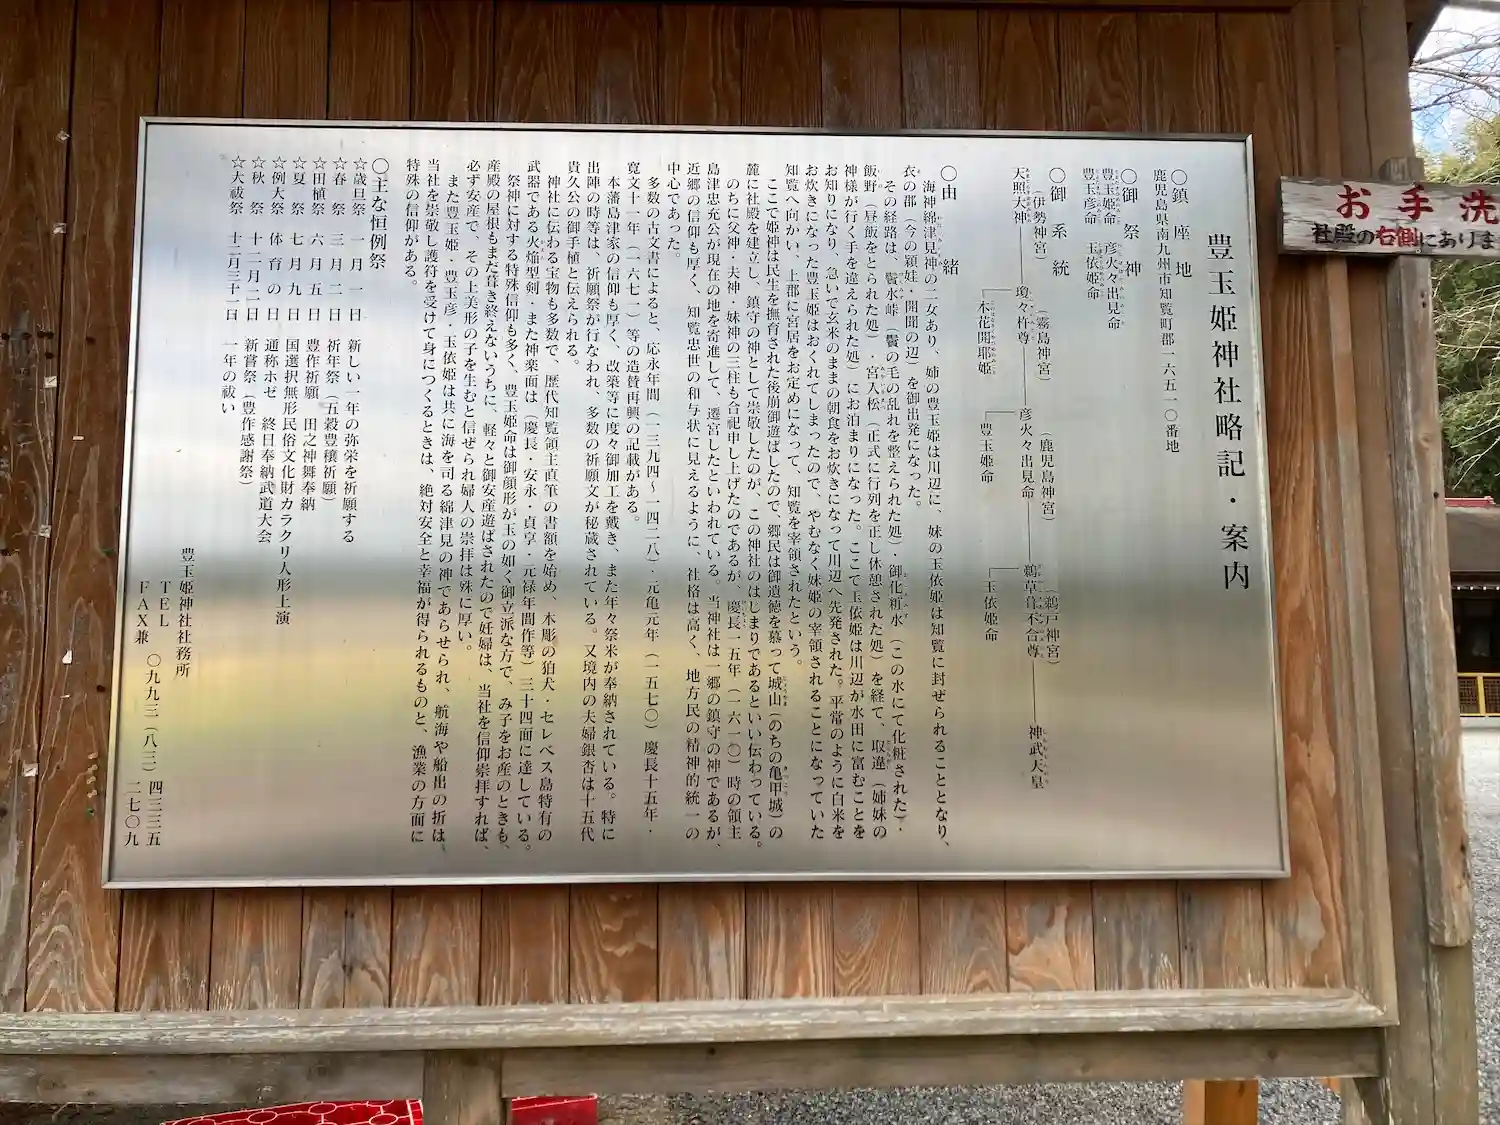 豊玉姫神社略記・案内
〇鎮座地
鹿児島県南九州市知覧町郡一六五一〇番地
〇御祭神
豊玉姫命 彦火々出見命
豊玉彦命 玉依姫命
〇御系統
(伊勢神宮) (霧島神宮) (鹿児島神宮) (鵜戸神宮)
天照大神 瓊々杵尊 彦火々出見命 鵜草葺不合尊 神武天皇
木花開耶姫 豊玉姫命 玉依姫命
〇由緒
海神綿津見神の二女あり、姉の豊玉姫は川辺に、妹の玉依姫は知覧に封ぜられることとなり、
衣の郡(今の穎娃・開聞の辺)を御出発になった。
その経路は、鬢水峠(鬢の毛の乱れを整えられた処)・御化粧水(この水にて化粧された)・
飯野(昼飯をとられた処)・宮入松(正式に行列を正し休憩された処)を経て、取違(姉妹の
神様が行く手を違えられた処)にお泊まりになった。ここで玉依姫は川辺が水田に富むことを
お知りになり、急いで玄米のままの朝食をお炊きになって川辺へ先発された。平常のように白米を
お炊きになった豊玉姫はおくれてしまったので、やむなく妹姫の宰領されることになっていた
知覧へ向かい、上郡に宮居をお定めになって、知覧を宰領されたという。
ここで姫神は民生を撫育された後崩御遊ばしたので、郷民は御遺徳を慕って城山(のちの亀甲城)の
麓に社殿を建立し、鎮守の神として崇敬したのが、この神社のはじまりであるといい伝わっている。
のちに父神・夫神・妹神の三柱も合祀申し上げたのであるが、慶長一五年(一六一〇)時の領主
島津忠充公が現在の地を寄進して、遷宮したといわれている。当神社は一郷の鎮守の神であるが、
近郷の信仰も厚く、知覧忠世の和与状に見えるように、社格は高く、地方民の精神的統一の
中心であった。
多数の古文書によると、応永年間(一三九四〜一四二八)・元亀元年(一五七〇)慶長十五年・
寛文十一年(一六七一)等の造賛再興の記載がある。
本藩島津家の信仰も厚く、改築等に度々御加工を戴き、また年々祭米が奉納されている。特に
出陣の時等は、祈願祭が行なわれ、多数の祈願文が秘蔵されている。又境内の夫婦銀杏は十五代
貴久公の御手植と伝えられる。
神社に伝わる宝物も多数で、歴代知覧領主直筆の書額を始め、木彫の狛犬・セレベス島特有の
武器である火焔型剣・また神楽面は(慶長・安永・貞享・元禄年間作等)三十四面に達している。
祭神に対する特殊信仰も多く、豊玉姫命は御顔形が玉の如く御立派な方で、み子をお産のときも、
産殿の屋根もまだ葺き終えないうちに、軽々と御安産遊ばされたので妊婦は、当社を信仰崇拝すれば、
必ず安産で、その上美形の子を生むと信ぜられ婦人の崇拝は殊に厚い。
また豊玉姫・豊玉彦・玉依姫は共に海を司る綿津見の神であらせられ、航海や船出の折は、
当社を崇敬し護符を受けて身につくるときは、絶対安全と幸福が得られるものと、漁業の方面に
特殊の信仰がある。
〇主な恒例祭
☆歳旦祭 一月一日 新しい一年の弥栄を祈願する
☆春祭 三月二日 祈年祭(五穀豊穣祈願)
☆田植祭 六月五日 豊作祈願 田之神舞奉納
☆夏祭 七月九日 国選択無形民俗文化財カラクリ人形上演
☆例大祭 体育の日 通称ホゼ 終日奉納武道大会
☆秋祭 十二月二日 新嘗祭(豊作感謝祭)
☆大祓祭 十二月三十一日 一年の祓い
豊玉姫神社社務所
TEL 〇九九三(八三)四三三五
FAX兼 二七〇九
お手洗
社殿の右側にありま